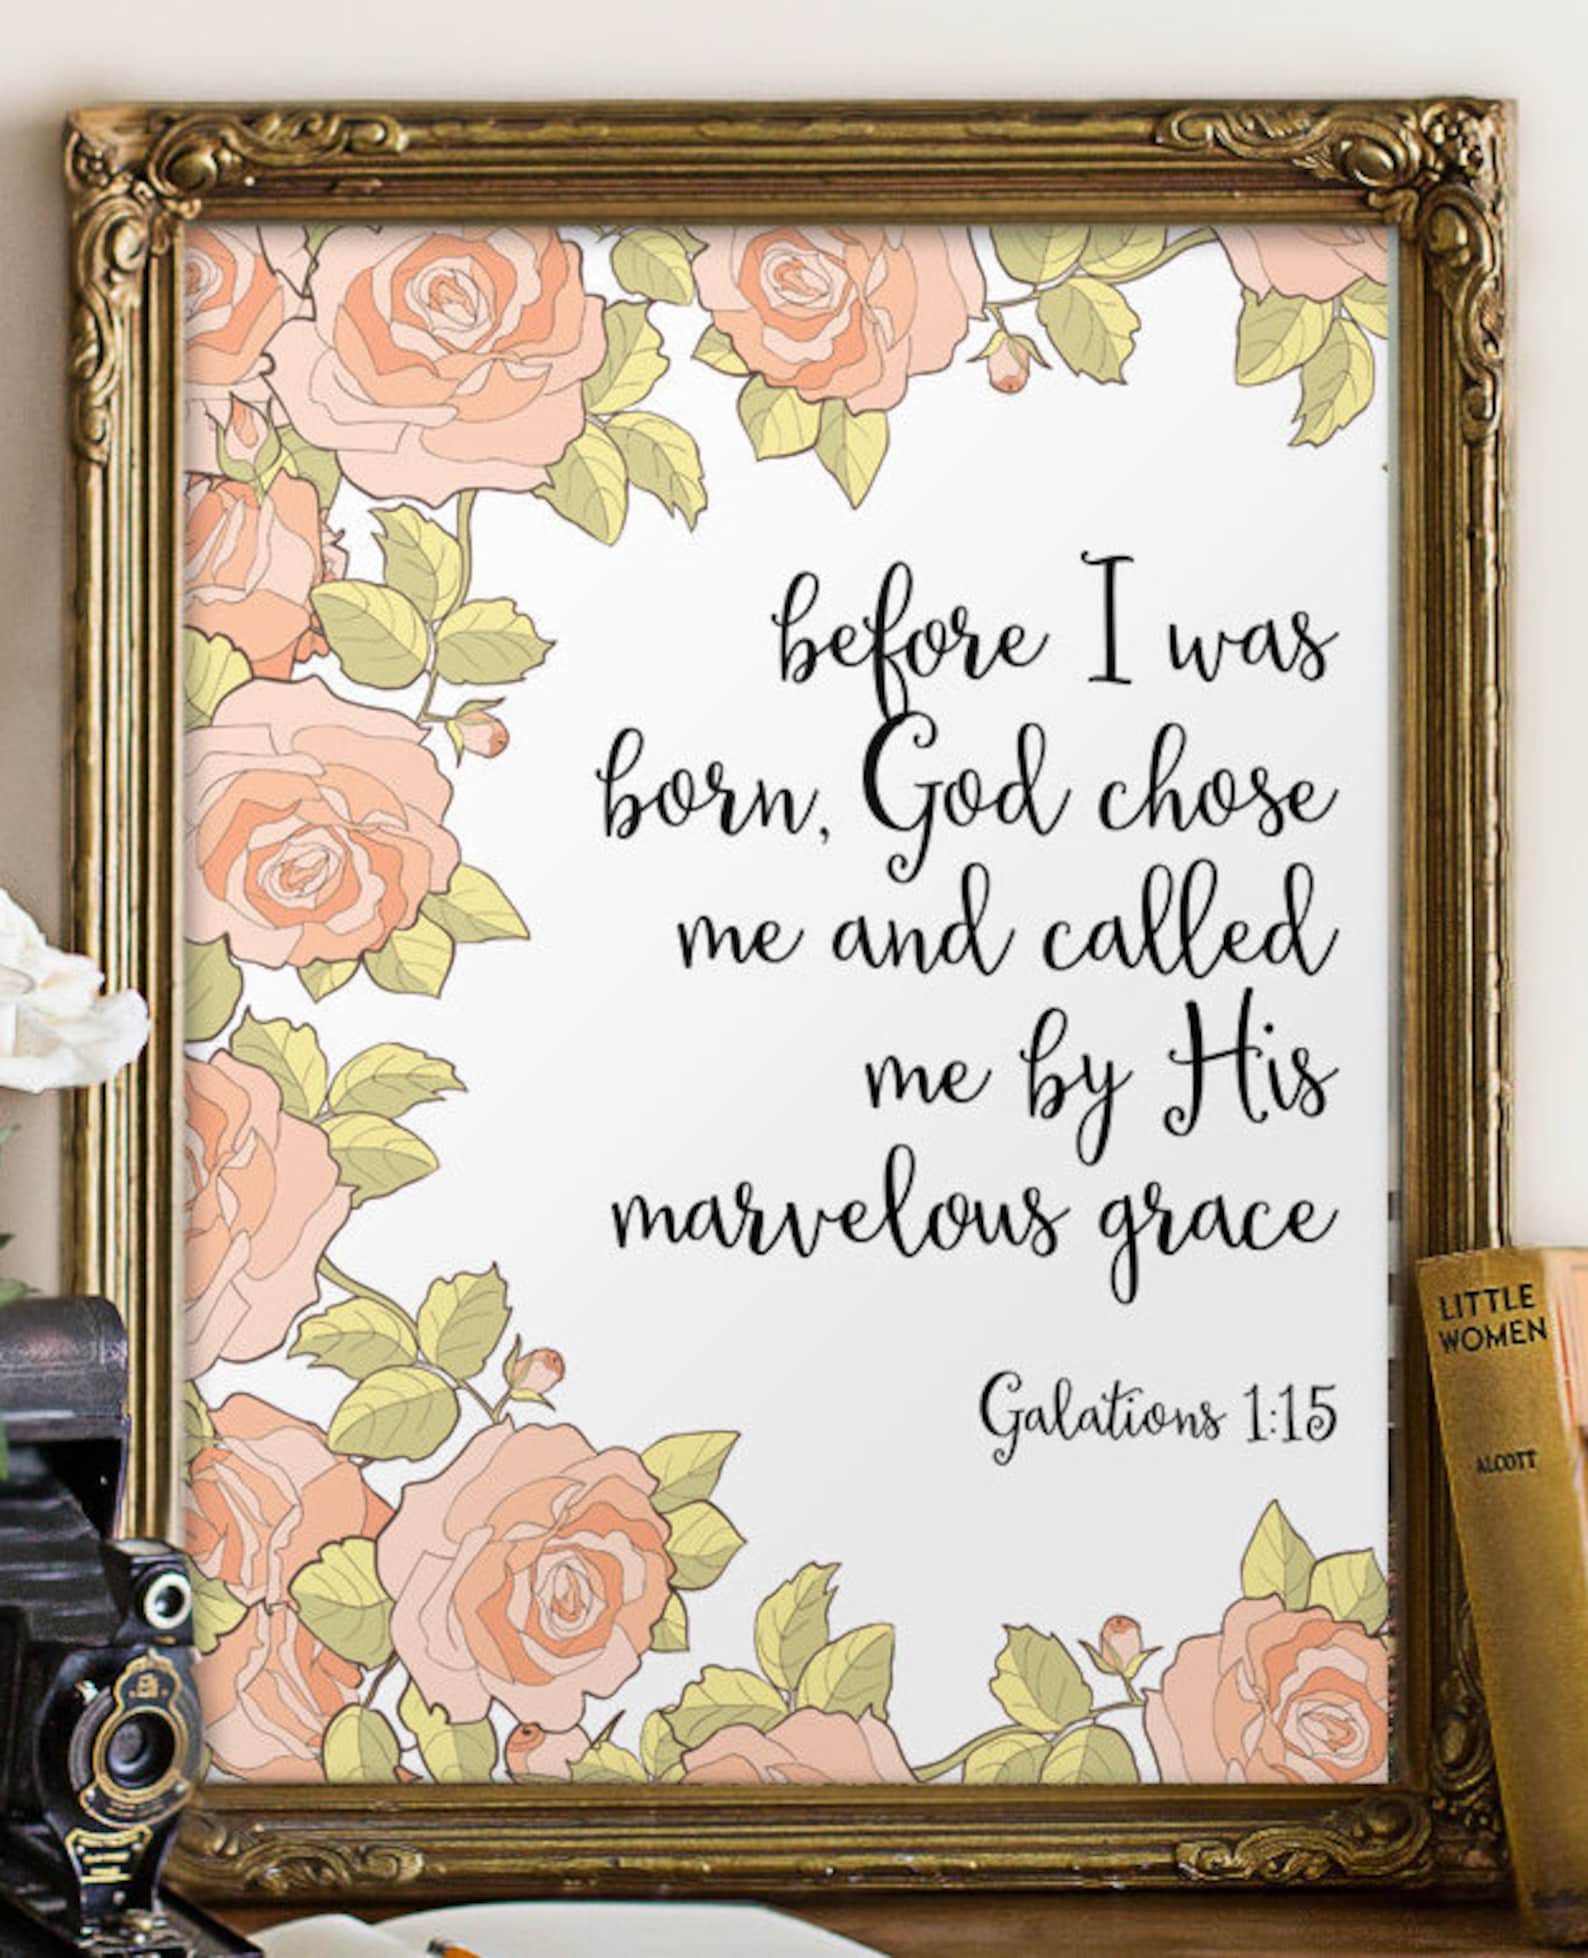 before I was
born, God chose
me and called
me by His
marvelous grace
Galations 1:15
LITTLE
WOMEN
ALCOTT